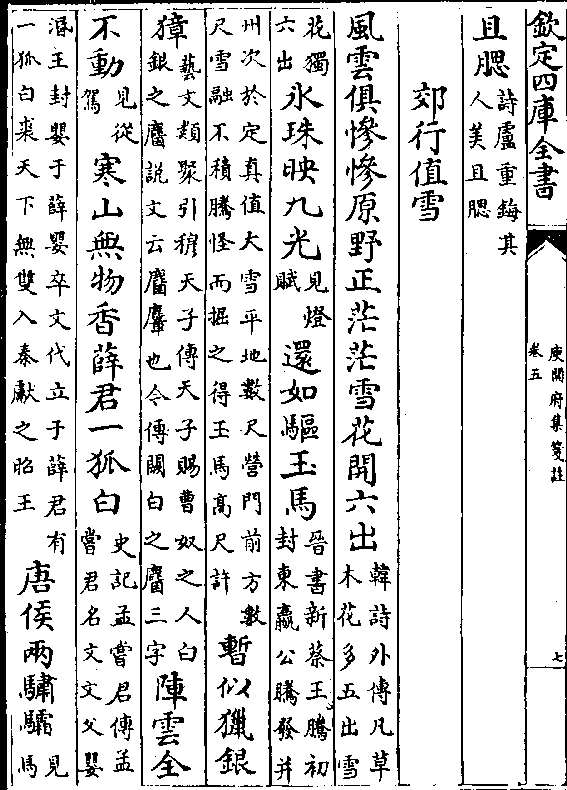 欽定四庫全書
庾開府集箋註
卷五
七
且腮詩盧重鋂其人美且腮
郊行值雪
風雲俱慘慘原野正茫茫雪花開六出韓詩外傳凡草木花多五出雪
花獨六出氷珠映九光見燈賦還如驅玉馬晉書新蔡王騰初封東嬴公騰發并
州次於定真值大雪平地數尺營門前方數尺雪融不積騰怪而掘之得玉馬高尺許暫似獵銀
獐藝文類聚引穆天子傳天子賜曹奴之人白銀之麕說文云麕麞也今傳闕白之麕三字陣雲全
不動見從駕寒山無物香薛君一狐白史記孟嘗君傳孟嘗君名文文父嬰
湣王封嬰于薛嬰卒文代立于薛君有一狐白裘天下無雙入秦獻之昭王唐侯兩驌驦見馬